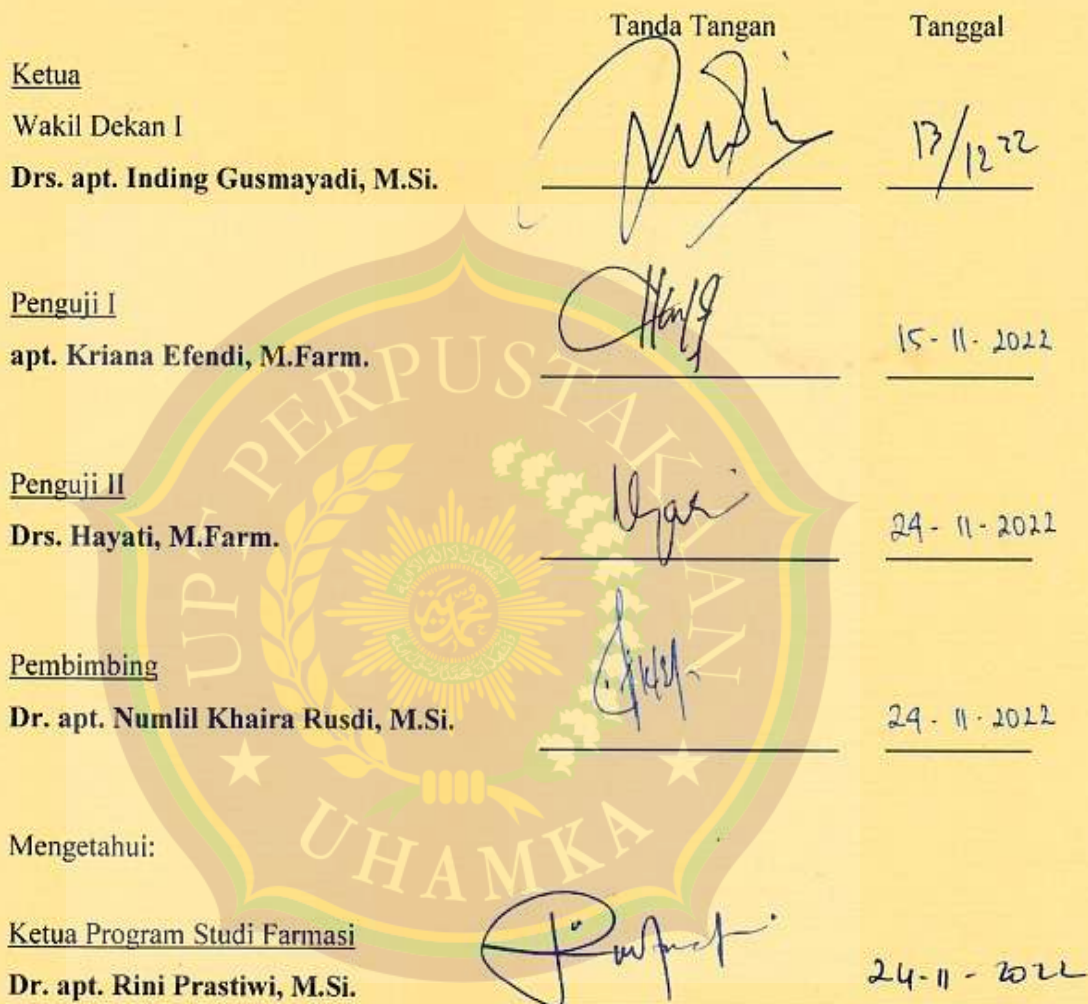 Tanda Tangan Tanggal
Ketua
Wakil Dekan I
Drs. apt. Inding Gusmayadi, M.Si. 13/12 22
Penguji I
apt. Kriana Efendi, M.Farm. 15-11-2022
Penguji II
Drs. Hayati, M.Farm. 29-11-2022
Pembimbing
Dr. apt. Numlil Khaira Rusdi, M.Si. 29-11-2022
Mengetahui:
Ketua Program Studi Farmasi
Dr. apt. Rini Prastiwi, M.Si. 24-11-2022
UPT PERPUSTAKAAN
UHAMKA